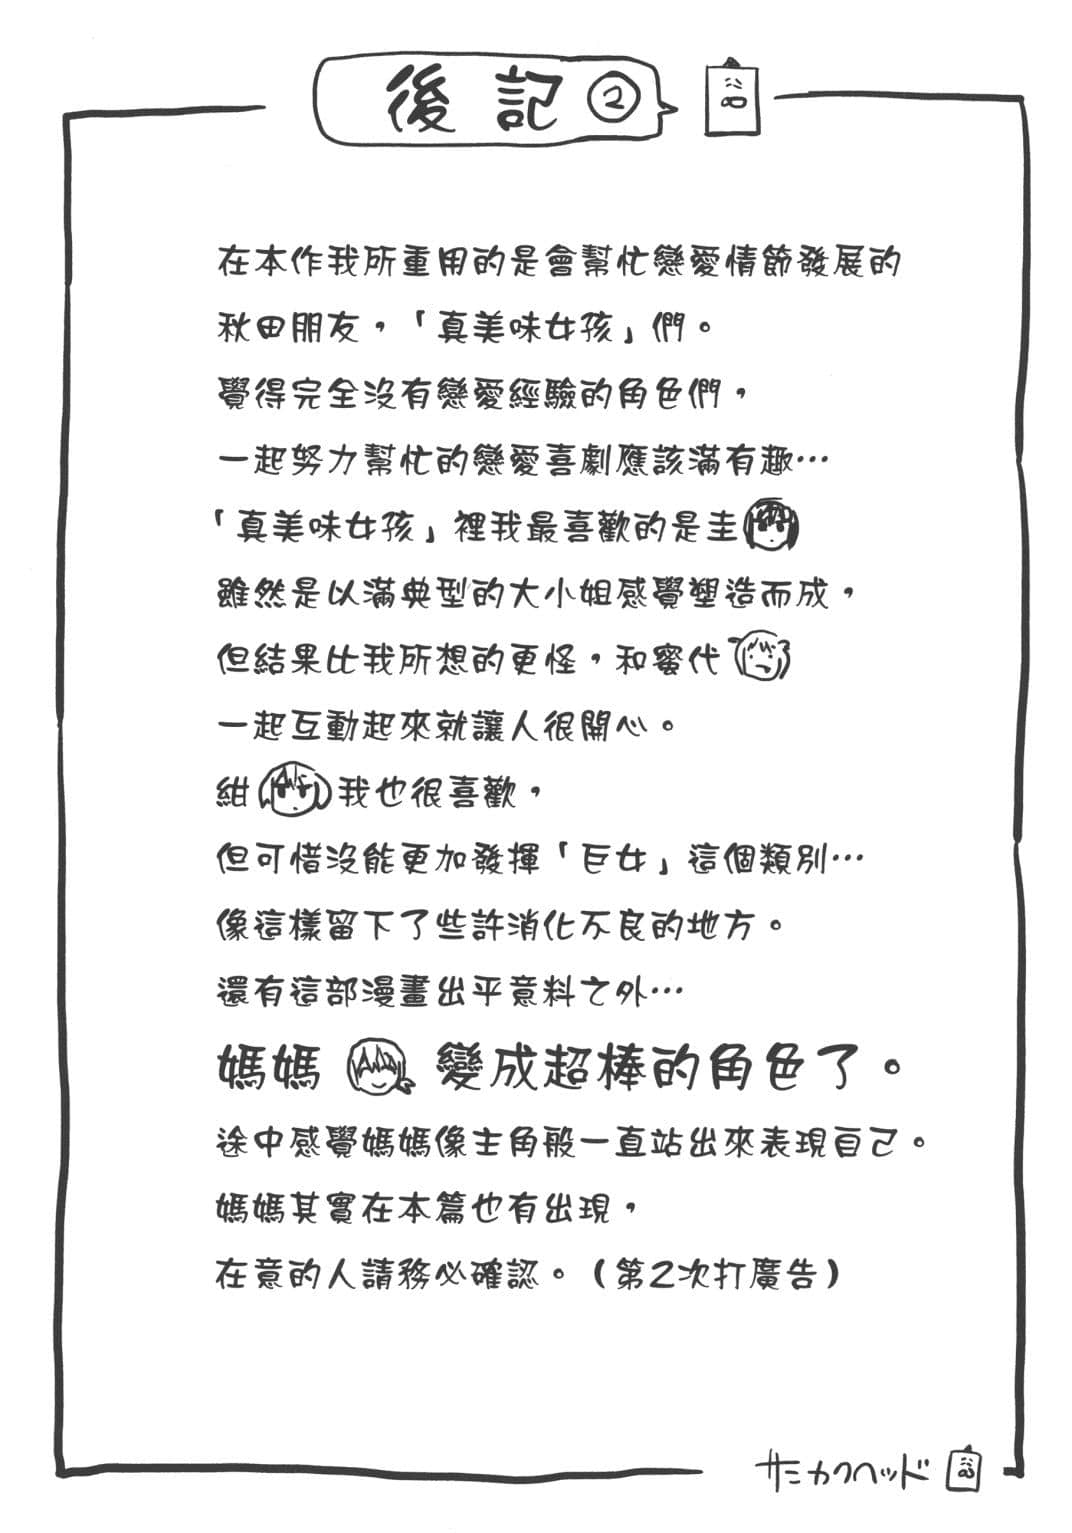 後記②
在本作我所重用的是會幫忙戀愛情節發展的
秋田朋友，「真美味女孩」們。
覺得完全沒有戀愛經驗的角色們，
一起努力幫忙的戀愛喜劇應該滿有趣…
「真美味女孩」裡我最喜歡的是圭
雖然是以滿典型的大小姐感覺塑造而成，
但結果比我所想的更怪，和蜜代
一起互動起來就讓人很開心。
紺我也很喜歡，
但可惜沒能更加發揮「巨女」這個類別…
像這樣留下了些許消化不良的地方。
還有這部漫畫出乎意料之外…
媽媽 變成超棒的角色了。
途中感覺媽媽像主角般一直站出來表現自己。
媽媽其實在本篇也有出現，
在意的人請務必確認。（第2次打廣告）
サミカクヘッド